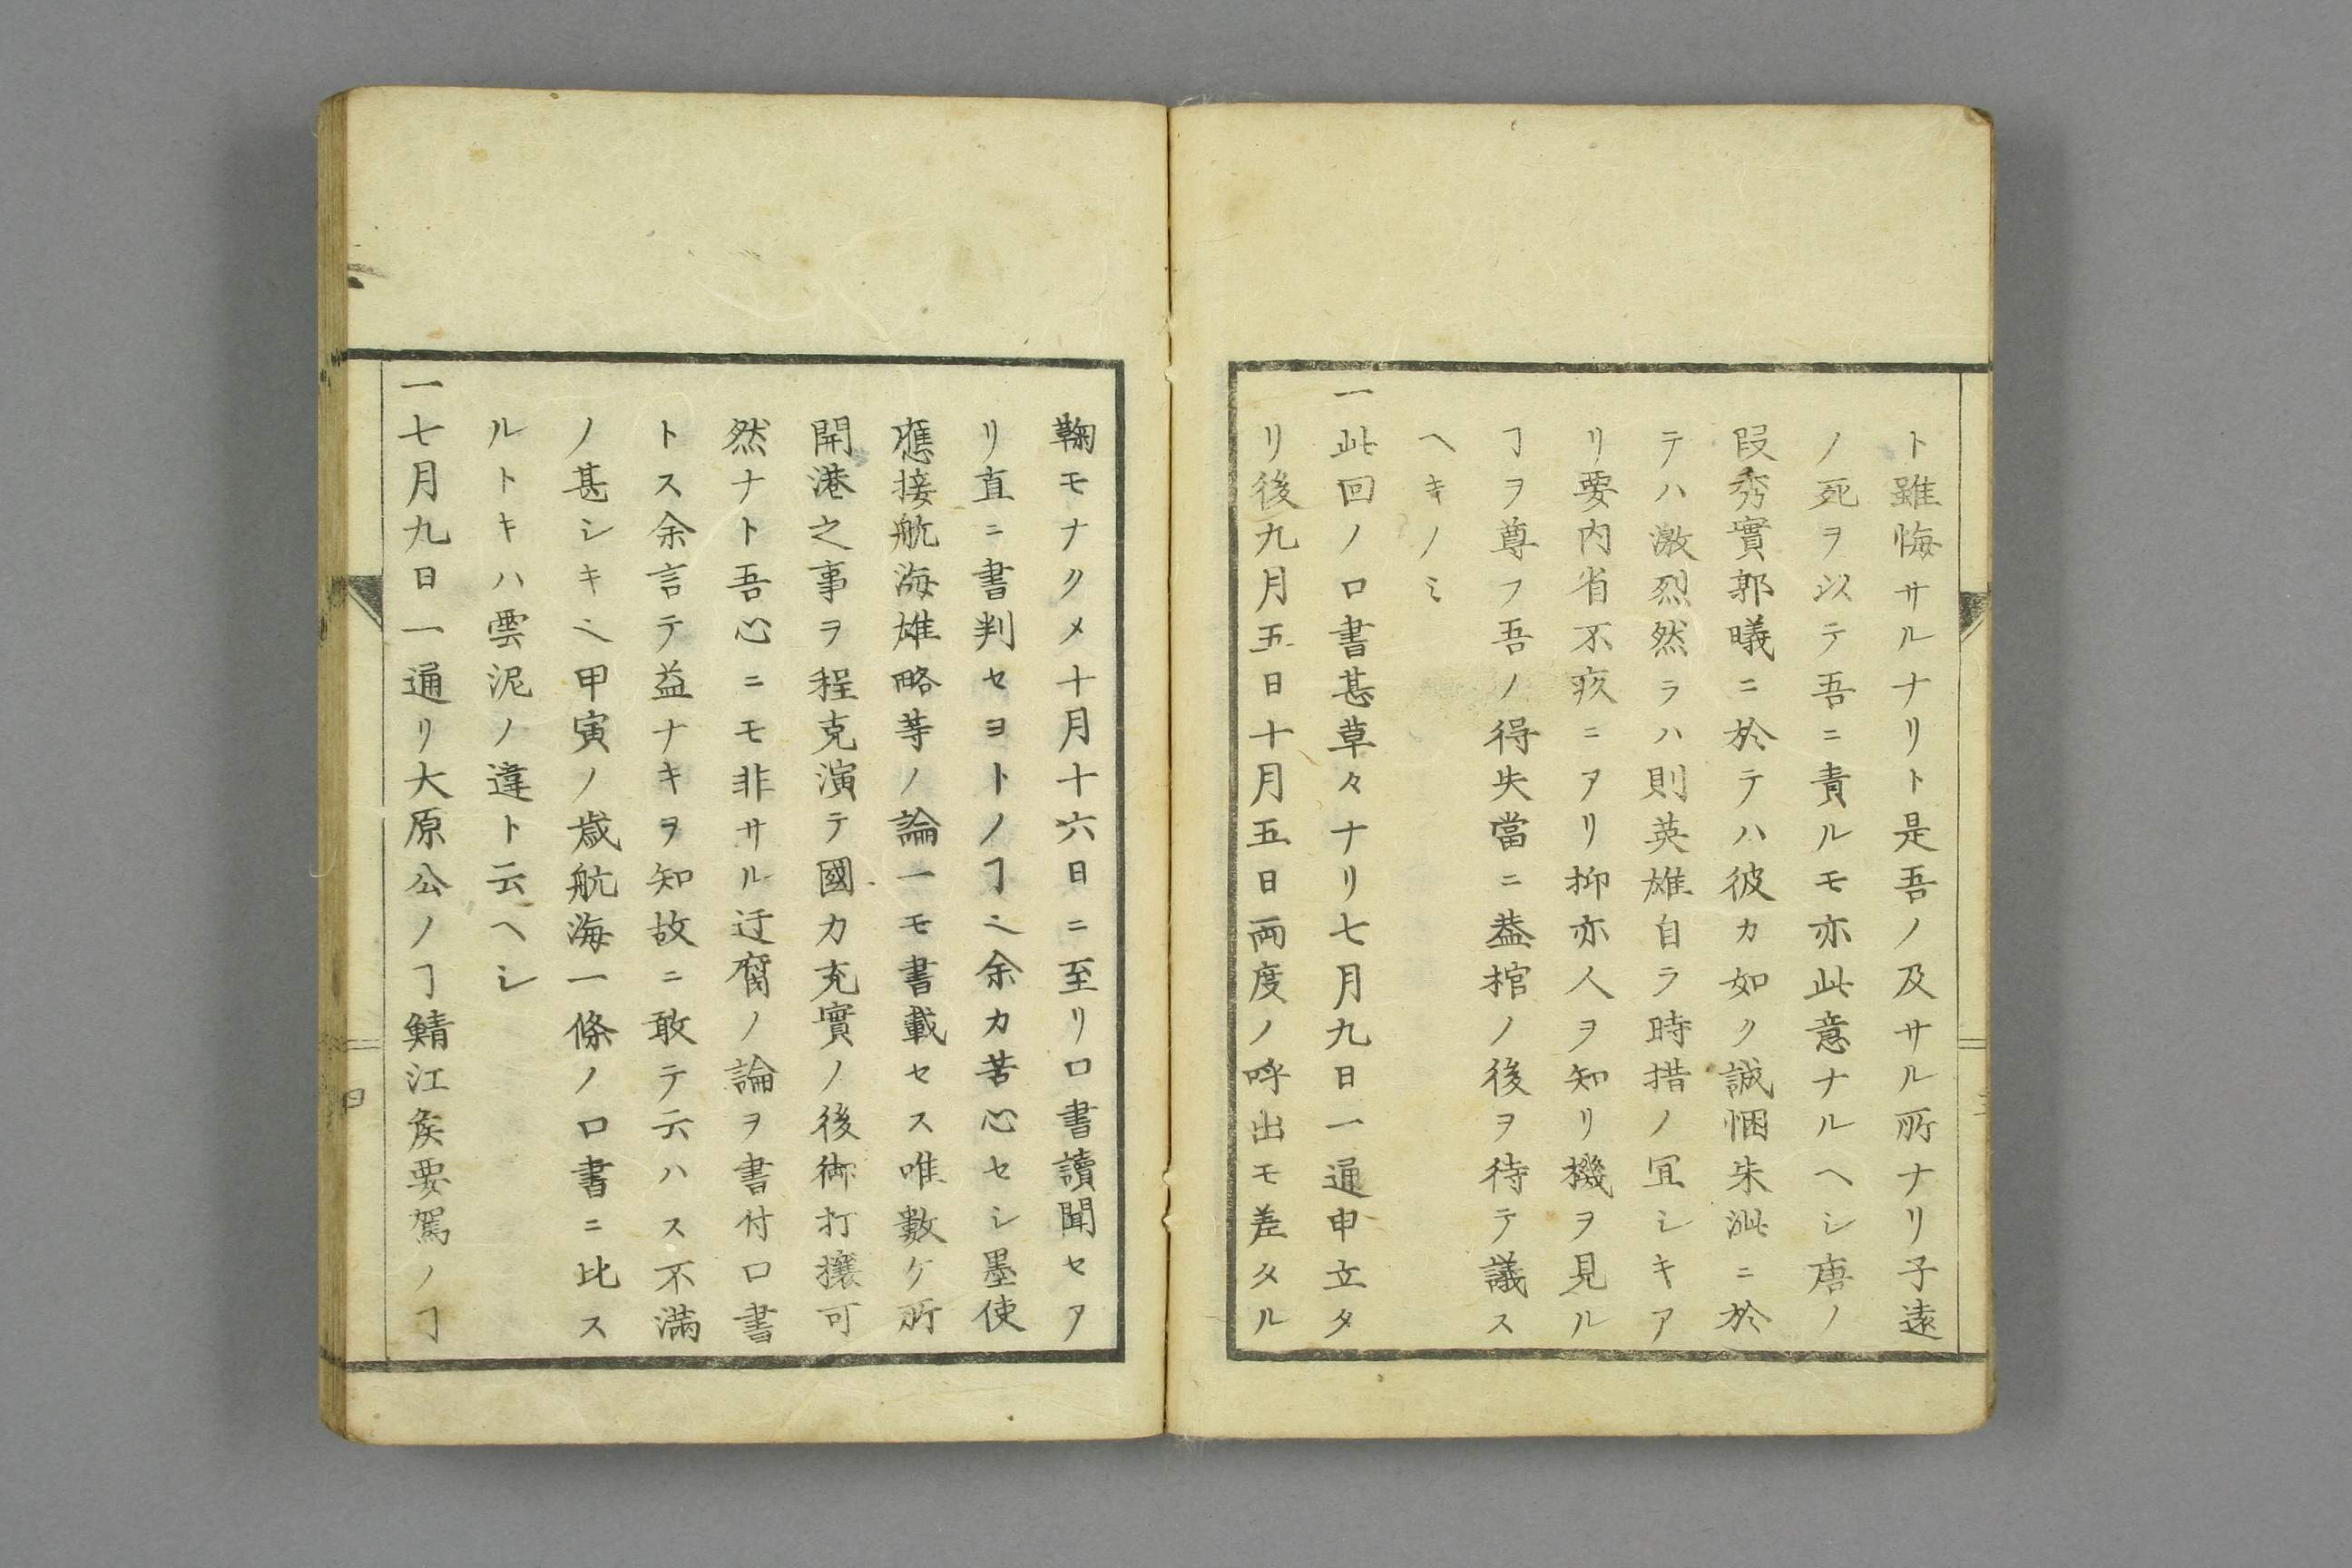 ト雖悔サルナリト是吾ノ及サル所ナリ子遠
ノ死ヲ以テ吾ニ責ルモ亦此意ナルヘシ唐ノ
段秀實郭曦ニ於テハ彼カ如ク誠悃朱泚ニ於
テハ激烈然ラハ則英雄自ラ時措ノ冝シキア
リ要内省不疚ニアリ抑亦人ヲ知リ機ヲ見ル
ヿヲ尊フ吾ノ得失當ニ蓋棺ノ後ヲ待テ議ス
ヘキノミ
一此回ノ口書甚草々ナリ七月九日一通申立タ
リ後九月五日十月五日両度ノ呼出モ差タル
鞠モナクメ十月十六日ニ至リ口書讀聞セア
リ直ニ書判セヨトノヿ𪜈余カ苦心セシ墨使
應接航海雄略等ノ論一モ書載セス唯數ケ所
開港之事ヲ程克演テ國力充實ノ後御打攘可
然ナト吾心ニモ非サル迂腐ノ論ヲ書付口書
トス余言テ益ナキヲ知故ニ敢テ云ハス不滿
ノ甚シキ也甲寅ノ歳航海一條ノ口書ニ比ス
ルトキハ雲泥ノ違ト云ヘシ
一七月九日一通リ大原公ノヿ鯖江矦要駕ノヿ